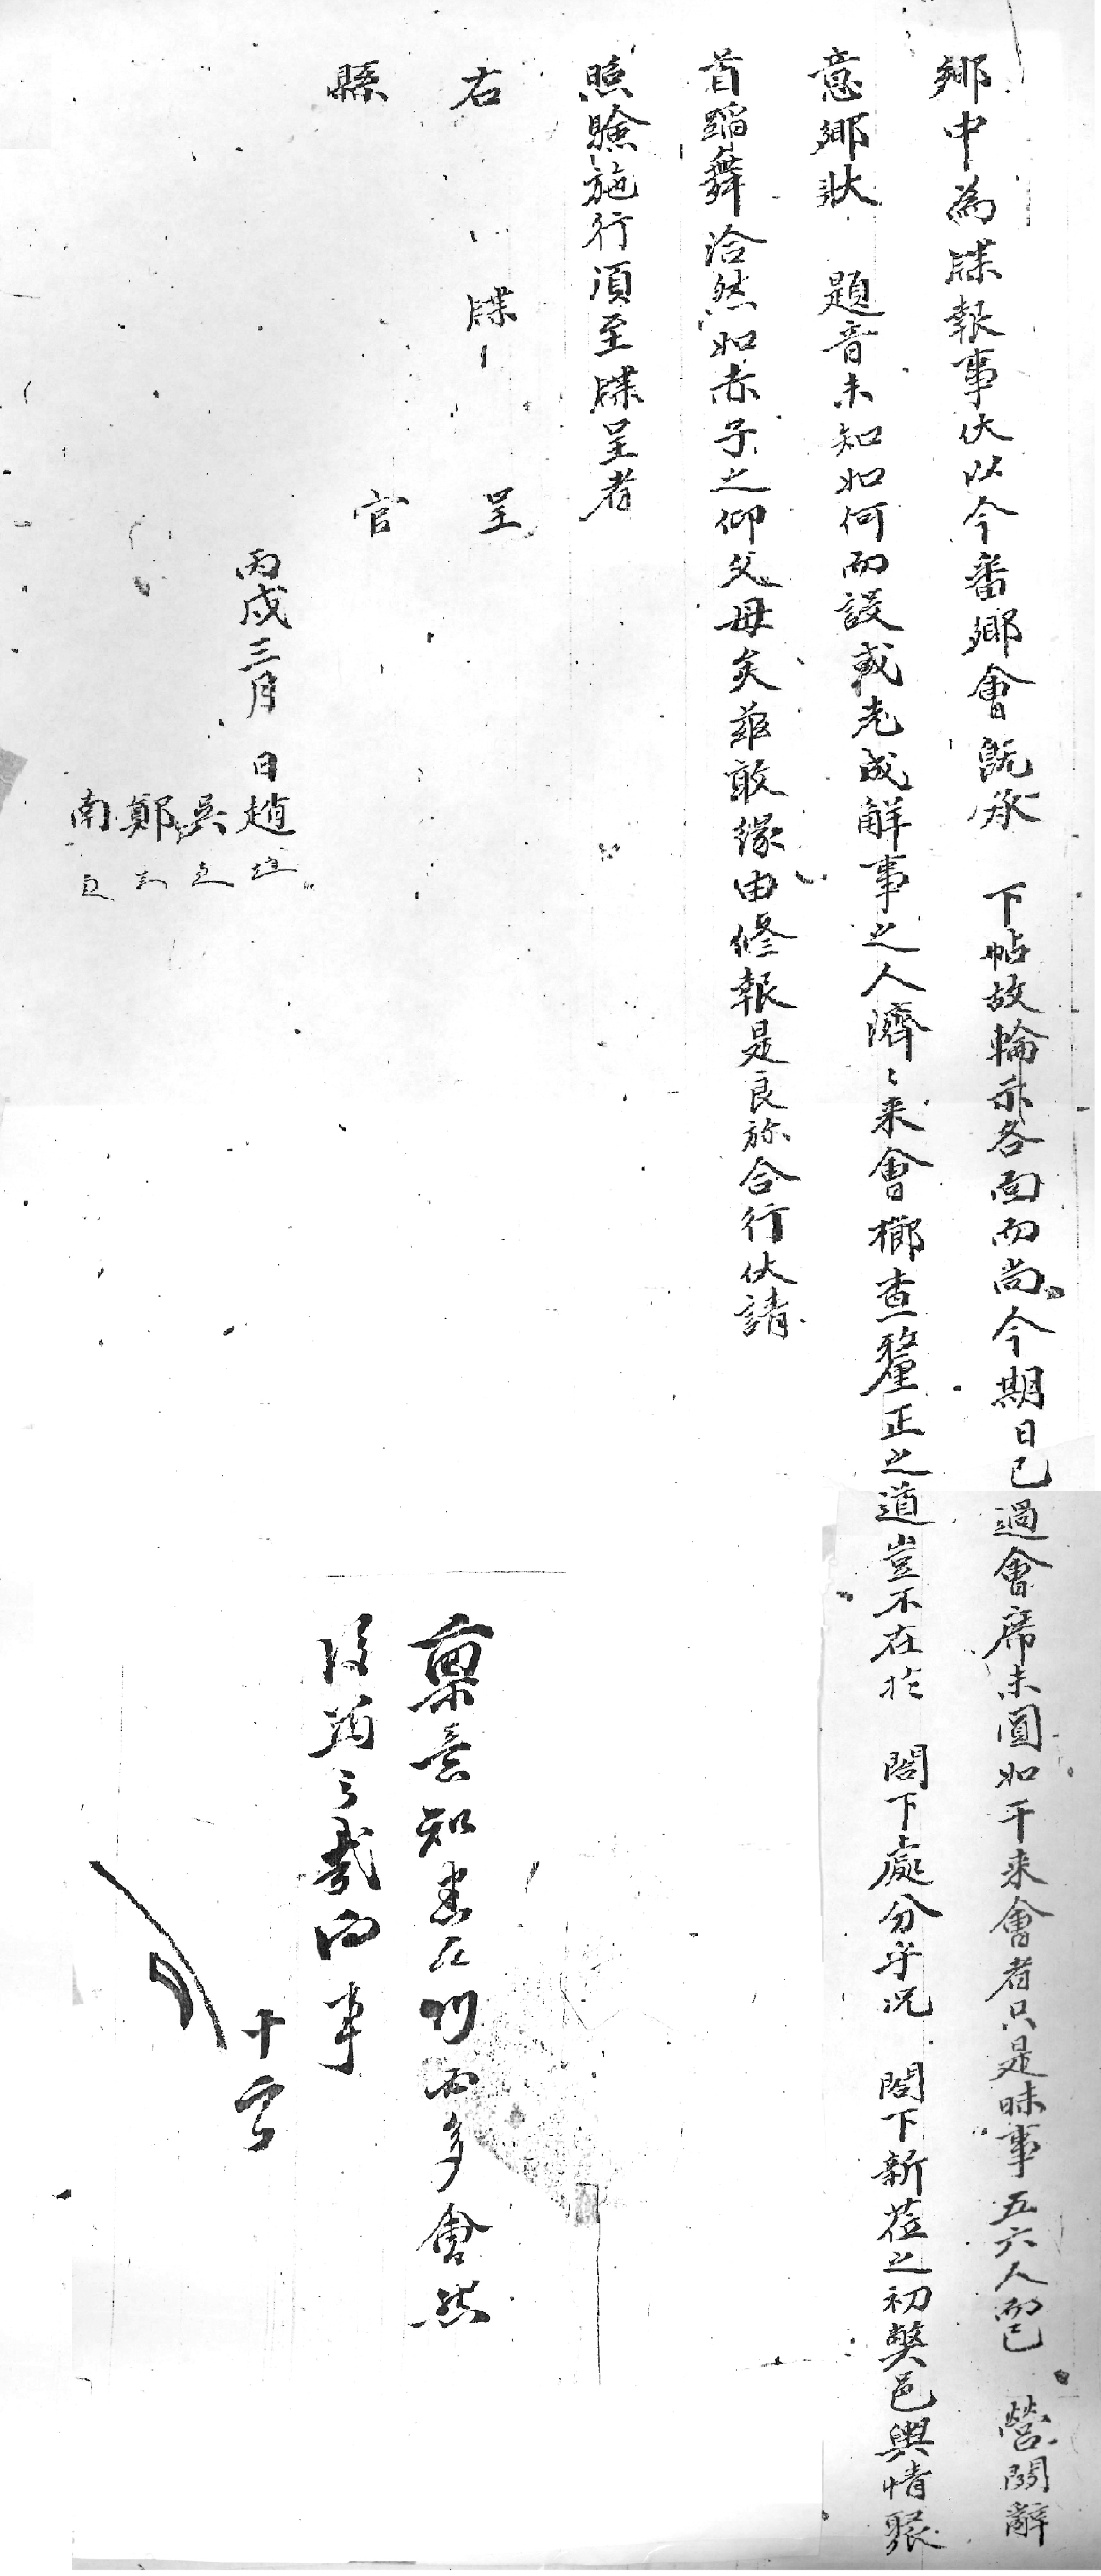 鄕中爲牒報事伏以今番鄕會旣承 下帖故輪示各面而尙今期日已過會席未圓如干來會者只是昧事五六人而已 營關辭
意鄕狀 題音未知如何而設或老成解事之人濟〻來會櫛査釐正之道豈不在於 閤下處分乎況 閤下新莅之初弊邑輿情聚
首蹈舞洽然如赤子之仰父母矣玆敢緣由修報是良旀合行伏請
照驗施行須至牒呈者
右 牒 呈
縣 官
丙戌三月 日趙
吳
鄭
南
稟意知悉 而多會然
後 事
十